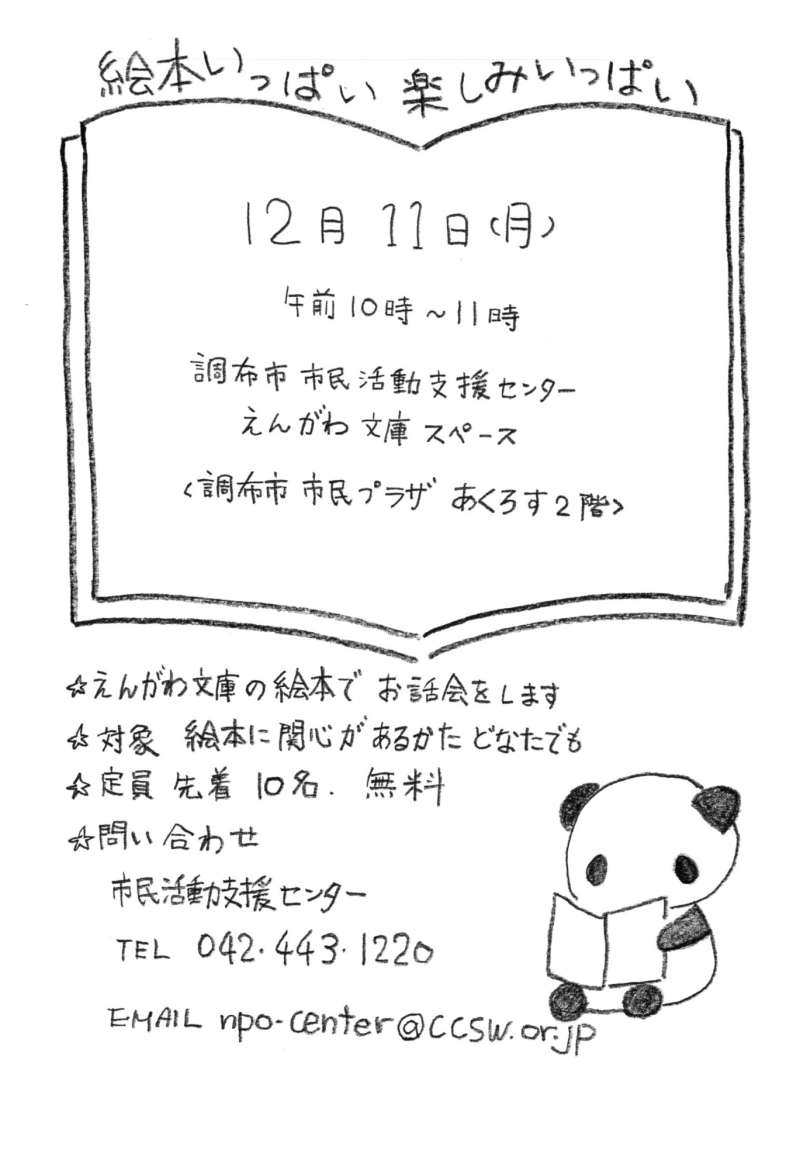 絵本いっぱい 楽しみいっぱい
12月 11日(月)
午前10時~11時
調布市 市民活動支援センター
えんがわ 文庫 スペース
<調布市 市民プラザ あくろす2階>
☆えんがわ文庫の絵本で お話会をします
☆対象 絵本に関心があるかた どなたでも
☆定員 先着 10名. 無料
☆問い合わせ
市民活動支援センター
TEL 042.443.1220
EMAIL npo-center@ccsw.or.jp